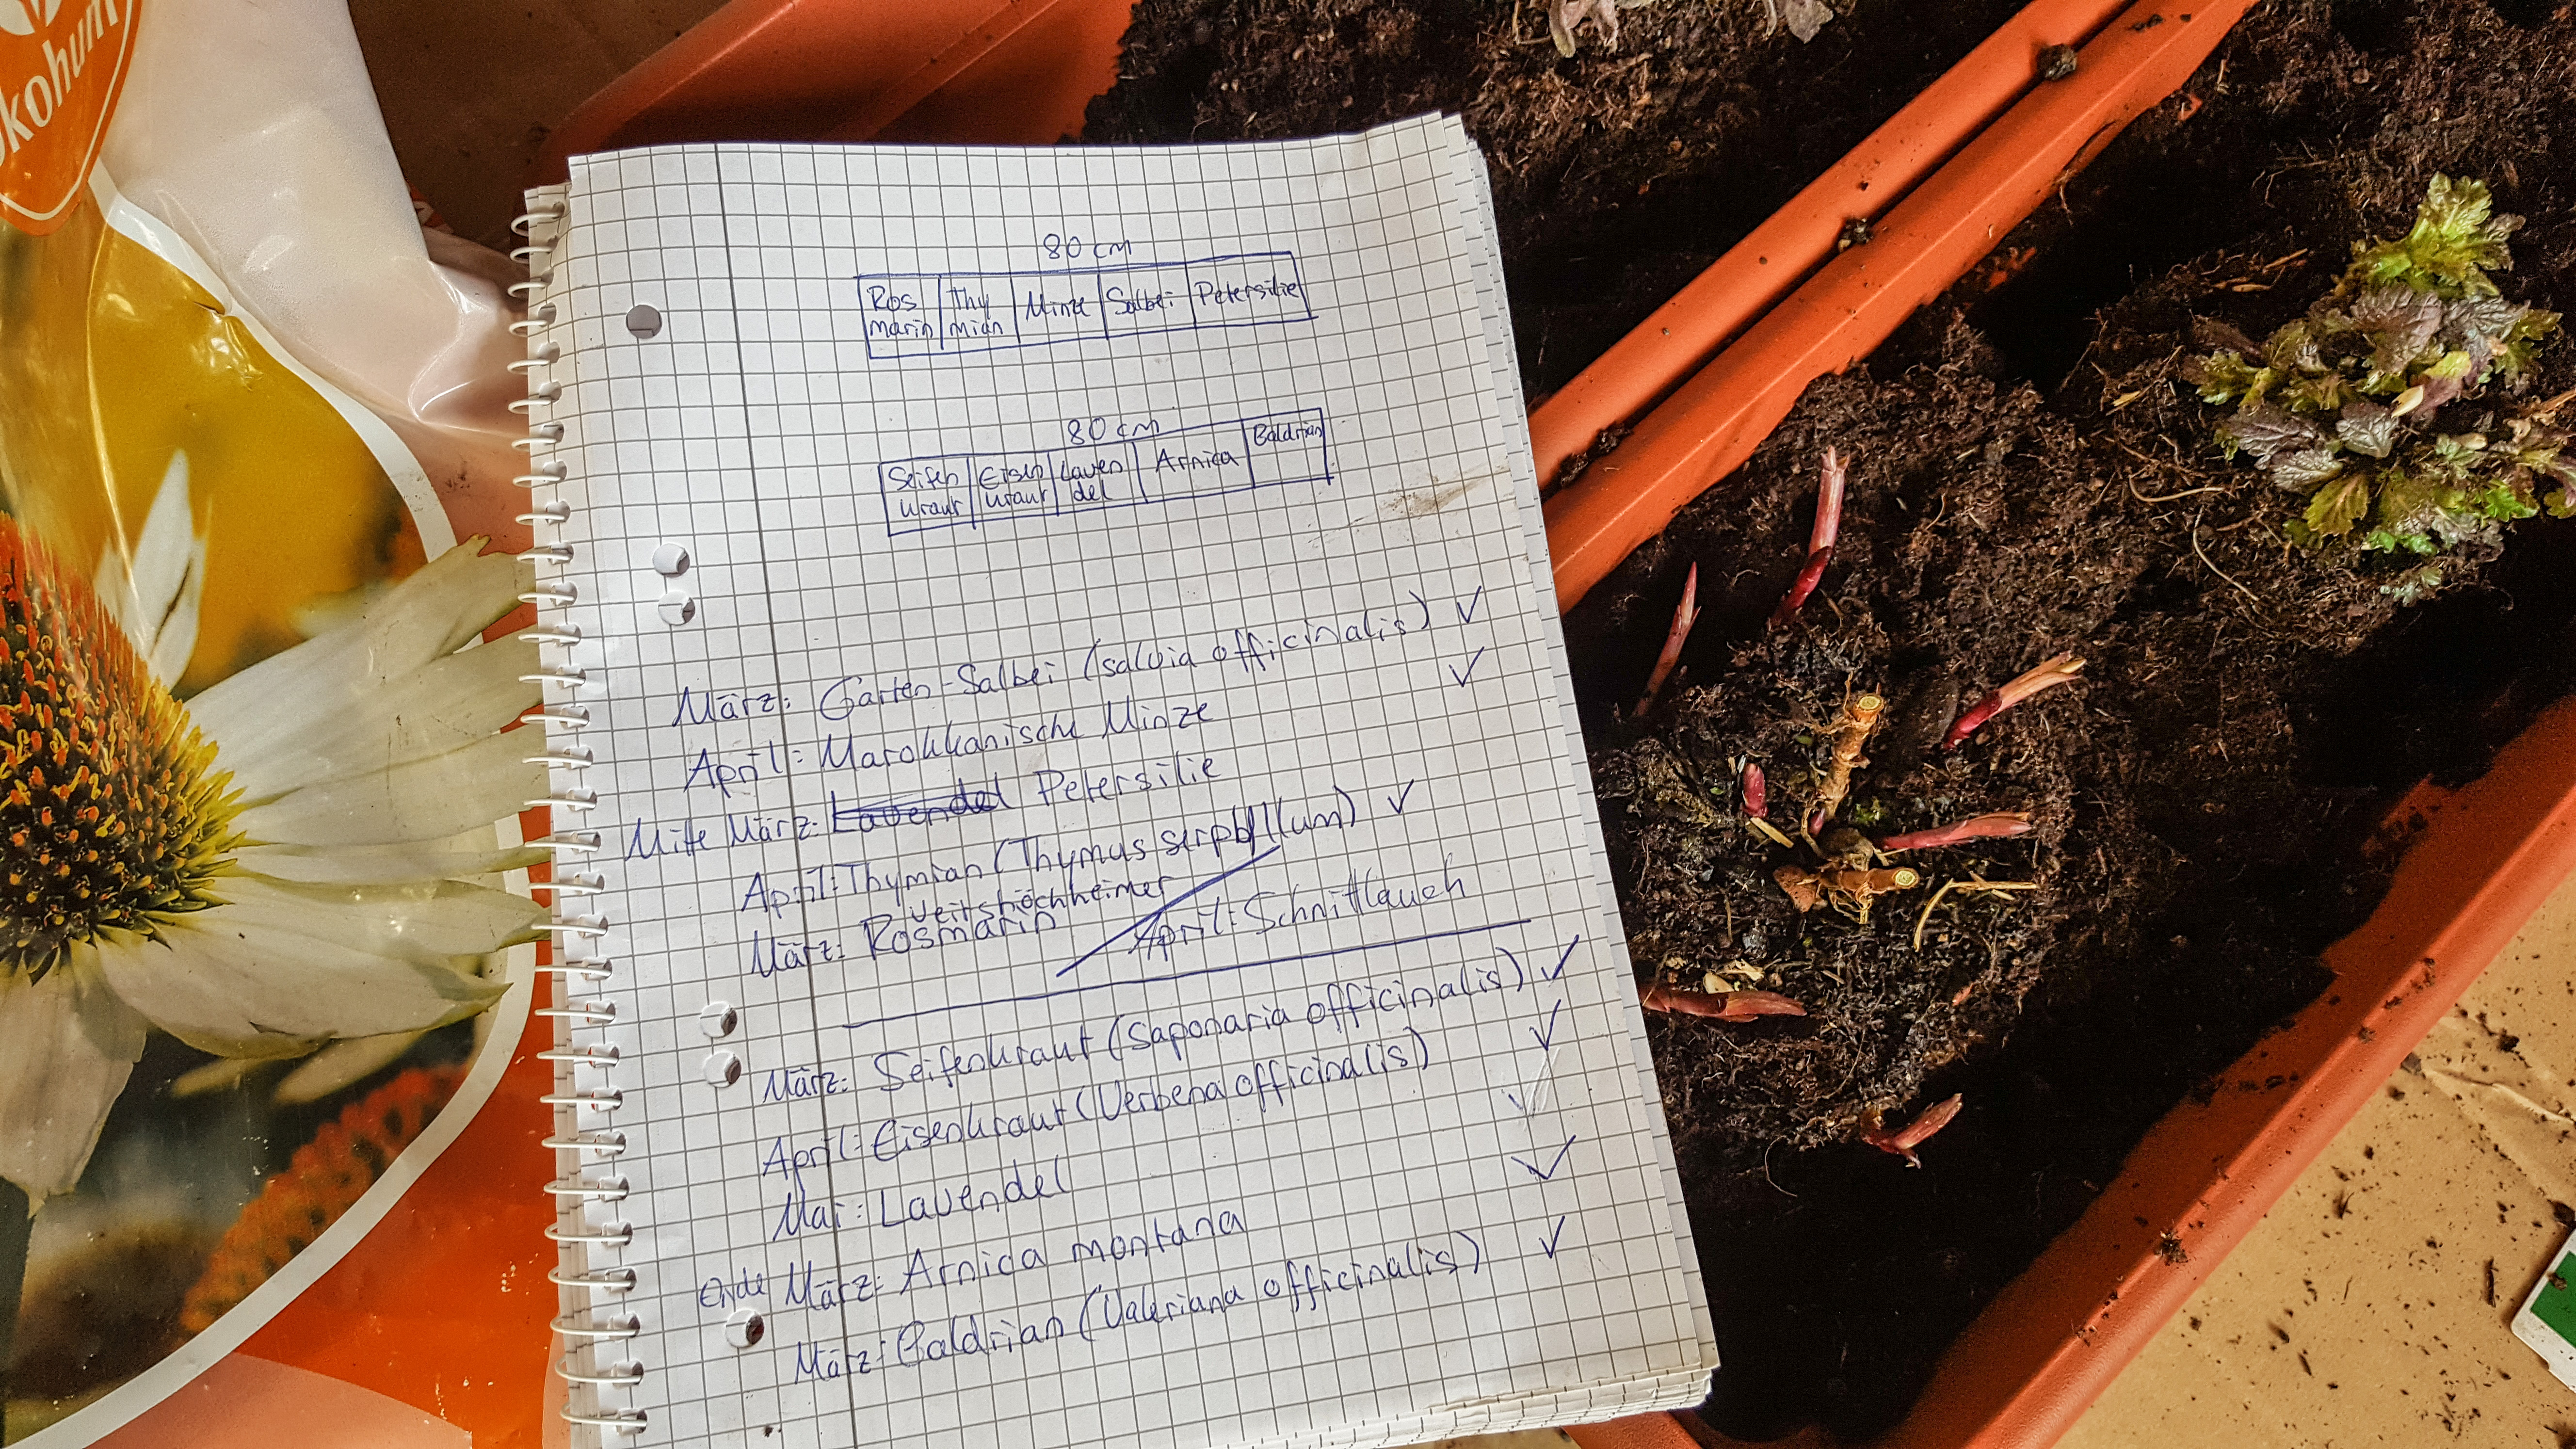 Ökohum
80 cm
Ros Thy Minze Salbei Petersilie
marin mian
80 cm
Seifen Eisen Laven Arnica Baldrian
kraut kraut del
März: Garten-Salbei (salvia officinalis) ✓
April: Marokkanische Minze ✓
Mitte März: Lavendel Petersilie
April: Thymian (Thymus serpyllum) ✓
Veitshöchheimer
März: Rosmarin / April: Schnittlauch
März: Seifenkraut (Saponaria officinalis) ✓
April: Eisenkraut (Verbena officinalis) ✓
Mai: Lavendel ✓
Ende März: Arnica montana ✓
März: Baldrian (Valeriana officinalis) ✓